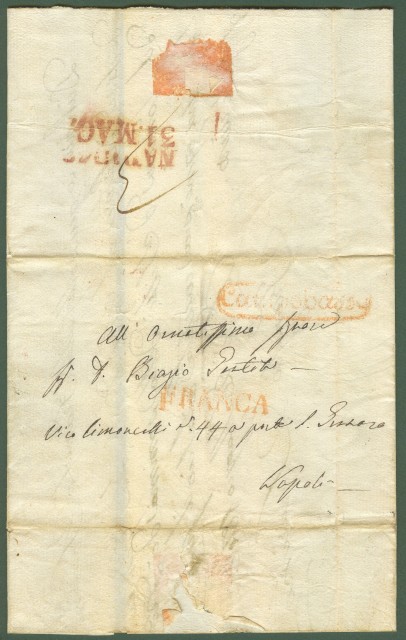 NAP. 
31 MAG.
Campobasso
All' Ornatissimo Signore
D. Biagio
FRANCA
Vico Limoncelli N. 44 a porta S. Gennaro
Napoli